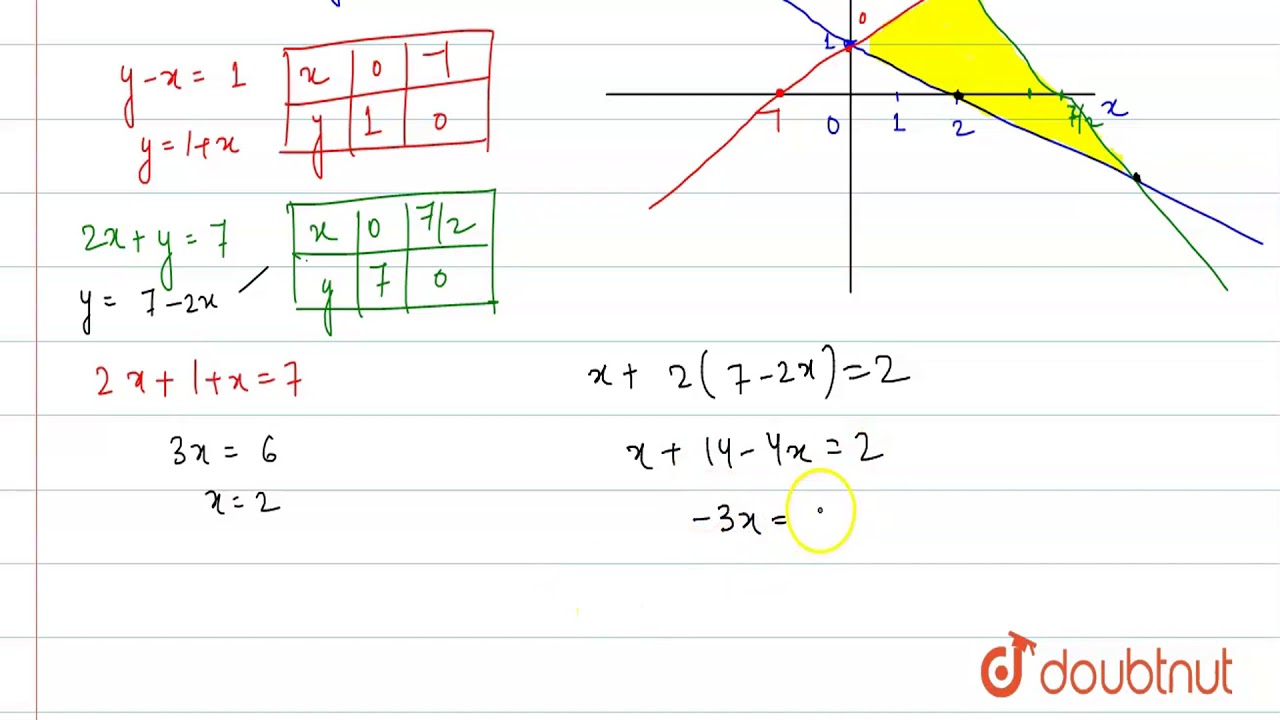 y - x = 1
y = 1 + x
x 0 -1
y 1 0
2x + y = 7
y = 7 - 2x
x 0 7/2
y 7 0
2x + 1 + x = 7
3x = 6
x = 2
0
1
-1 0 1 2 7/2 x
x + 2(7 - 2x) = 2
x + 14 - 4x = 2
-3x =
doubtnut